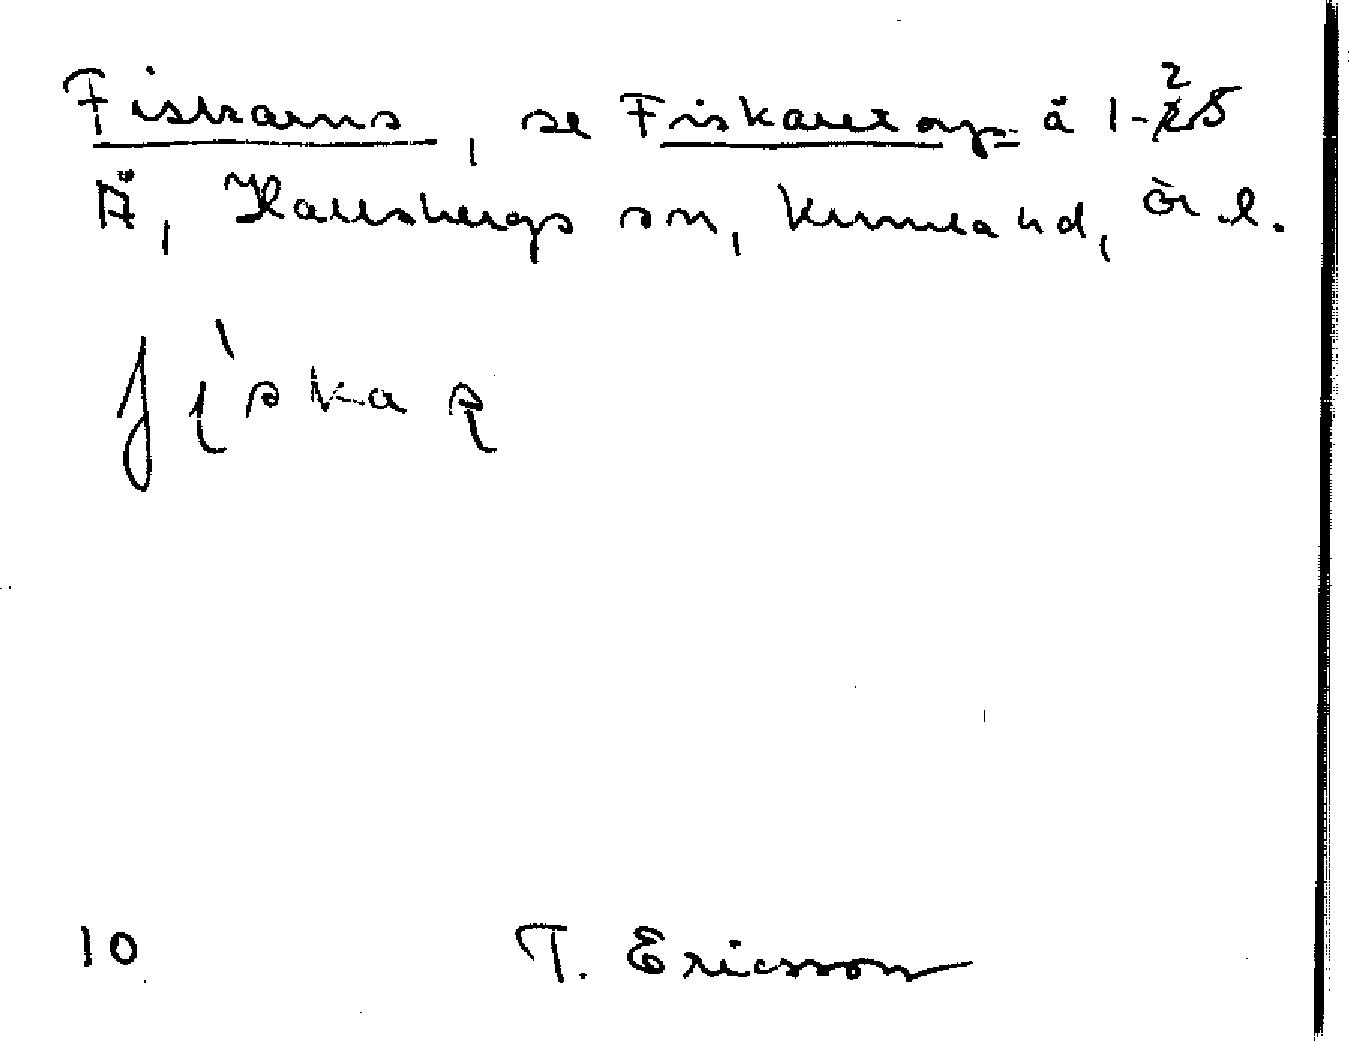 Fiskarns, se Fiskaretorp å 1-25
Ä, Hallsbergs sn, Kumla hd, Ör l.
fìskaṛ
10 T. Ericsson